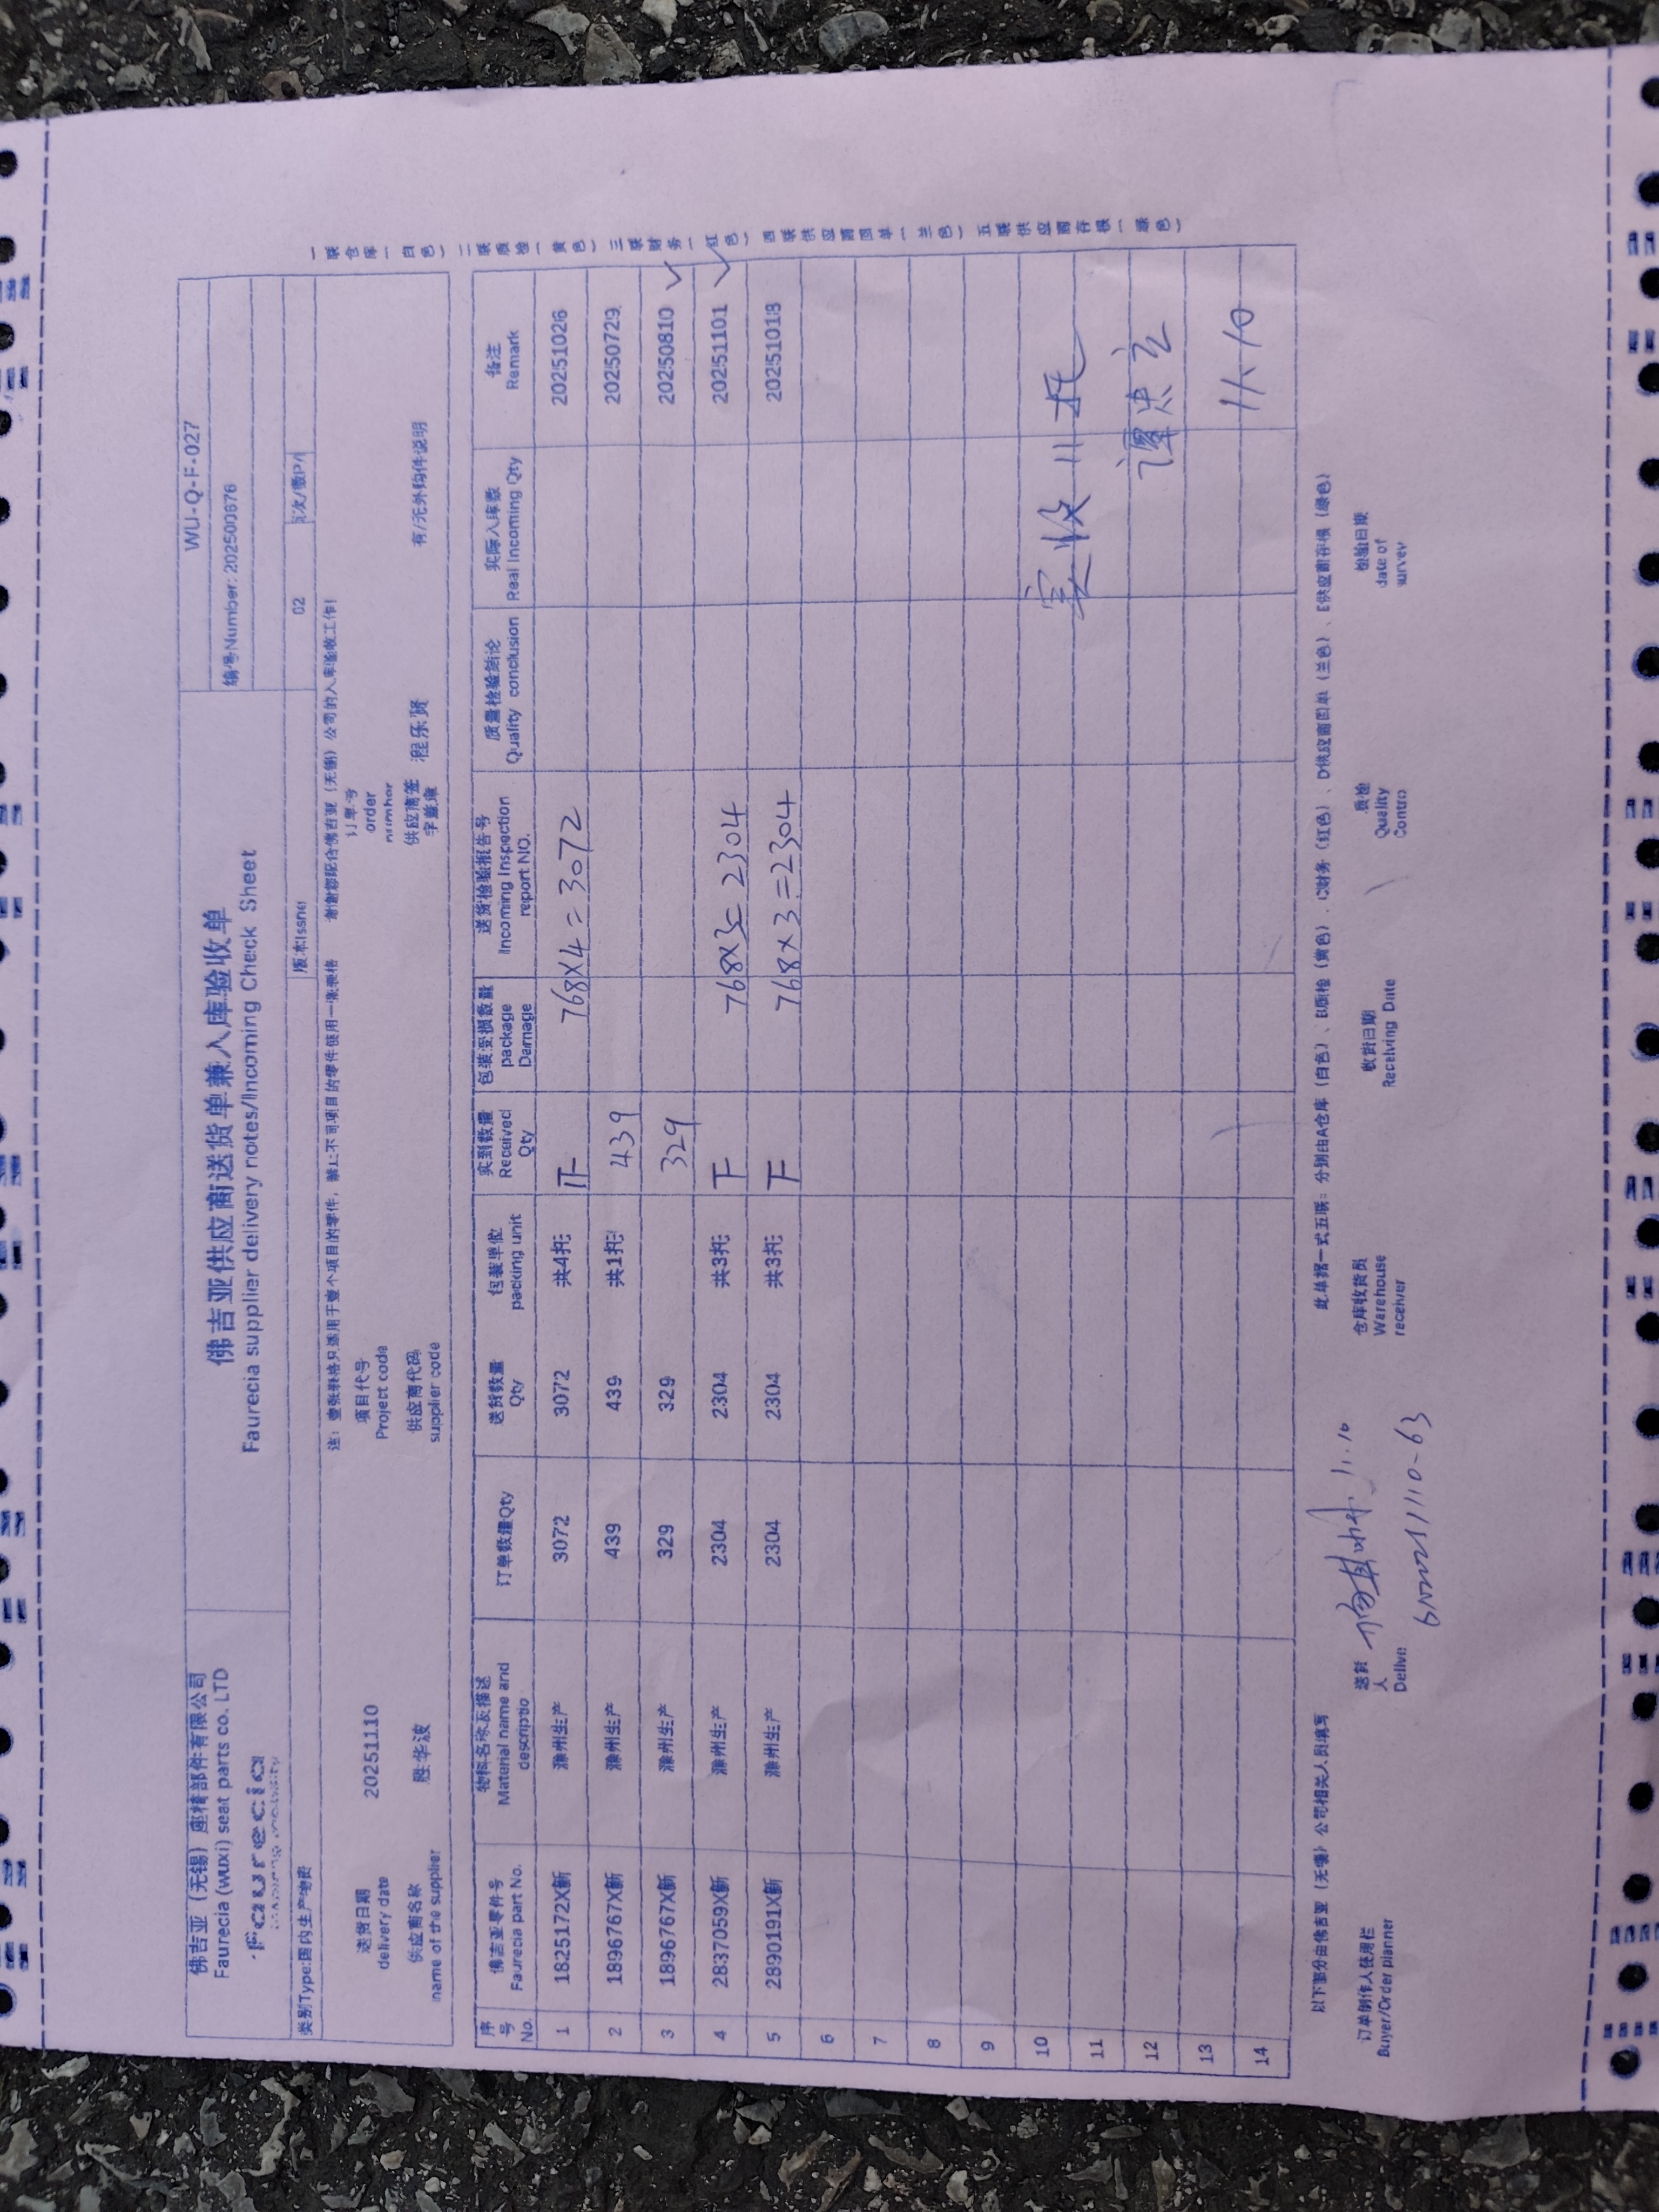 佛吉亚（无锡）座椅部件有限公司
Faurecia (wuxi) seat parts co. LTD
faurecia
佛吉亚供应商送货单兼入库验收单
Faurecia supplier delivery notes/Incoming Check Sheet
WU-Q-F-027
编号Number: 202500876
类别Type:国内生产物资
版本Issue
02
注：壹张表格只适用于壹个项目的零件，禁止不同项目的零件使用一张表格
谢谢您配合佛吉亚（无锡）公司的入库验收工作！
送货日期 20251110 项目代号 订单号
delivery date Project code order number
供应商名称 胜华波 供应商代码 供应商签字盖章 程乐贤 有/无外购件说明
name of the supplier supplier code
序号 佛吉亚零件号 物料名称及描述 订单数量Qty 送货数量 包装单位 实到数量 包装受损数量 送货检验报告号 质量检验结论 实际入库数 备注
No. Faurecia part No. Material name and descriptio Qty packing unit Received Qty package Damage Incoming Inspection report NO. Quality conclusion Real Incoming Qty Remark
1 1825172X新 滁州生产 3072 3072 共4托 768×4=3072 20251026
2 1896767X新 滁州生产 439 439 共1托 439 20250729
3 1896767X新 滁州生产 329 329 329 20250810 ✓
4 2837059X新 滁州生产 2304 2304 共3托 下 768×3=2304 20251101 ✓
5 2890191X新 滁州生产 2304 2304 共3托 下 768×3=2304 20251018
6
7
8
9
10
11
实收11托
12
13
14
一联仓库（白色）二联质检（黄色）三联财务（红色）四联供应商回单（兰色）五联供应商存根（绿色）
以下部分由佛吉亚（无锡）公司相关人员填写
此单据一式五联：分别由A仓库（白色）、B质检（黄色）、C财务（红色）、D供应商回单（兰色）、E供应商存根（绿色）
订单制作人使用栏 送货人 11.10 仓库收货员 收货日期 质检 检验日期
Buyer/Order planner Delive Warehouse receiver Receiving Date Quality Contro date of survey